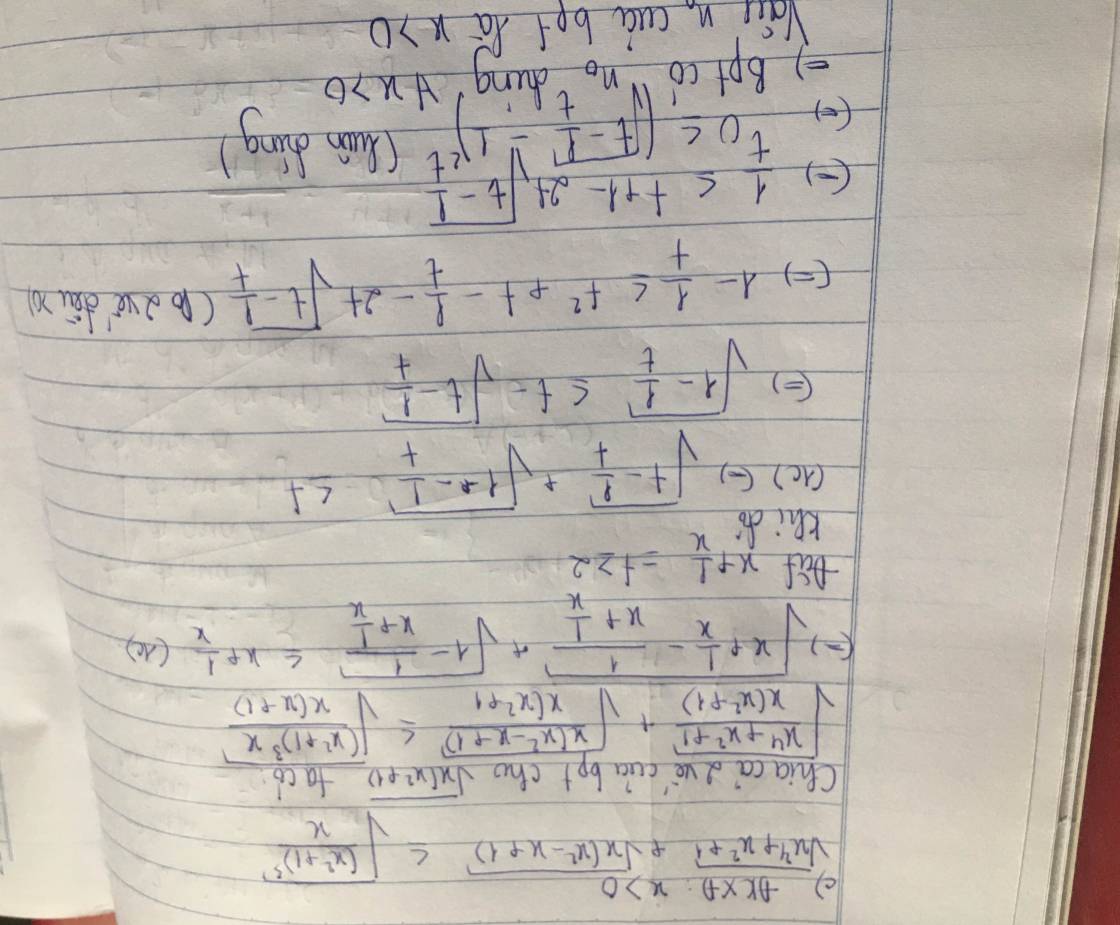 c) ĐKXĐ: x > 0
√(x⁴ + x² + 1) + √(x(x² - x + 1)) ≤ √((x² + 1)³/x)
Chia cả 2 vế của bpt cho √(x(x² + 1)) ta có:
√((x⁴ + x² + 1)/(x(x² + 1))) + √(x(x² - x + 1)/(x(x² + 1)) ≤ √((x² + 1)³/x)/(x(x² + 1))
(=) √(x + 1/x - 1/(x + 1/x)) + √(1 - 1/(x + 1/x)) ≤ x + 1/x (*)
Đặt x + 1/x = t ≥ 2
Khi đó
(*) (=) √(t - 1/t) + √(1 - 1/t) ≤ t
(=) √(1 - 1/t) ≤ t - √(t - 1/t)
(=) 1 - 1/t ≤ t² + t - 1/t - 2t√(t - 1/t) (Do 2 vế đều > 0)
(=) 1/t ≤ t + 1 - 2√(t - 1/t)
(=) 0 ≤ (√(t - 1/t) - 1)² (luôn đúng)
=) Bpt có nₒ đúng ∀ x > 0
Vậy nₒ của bpt là x > 0